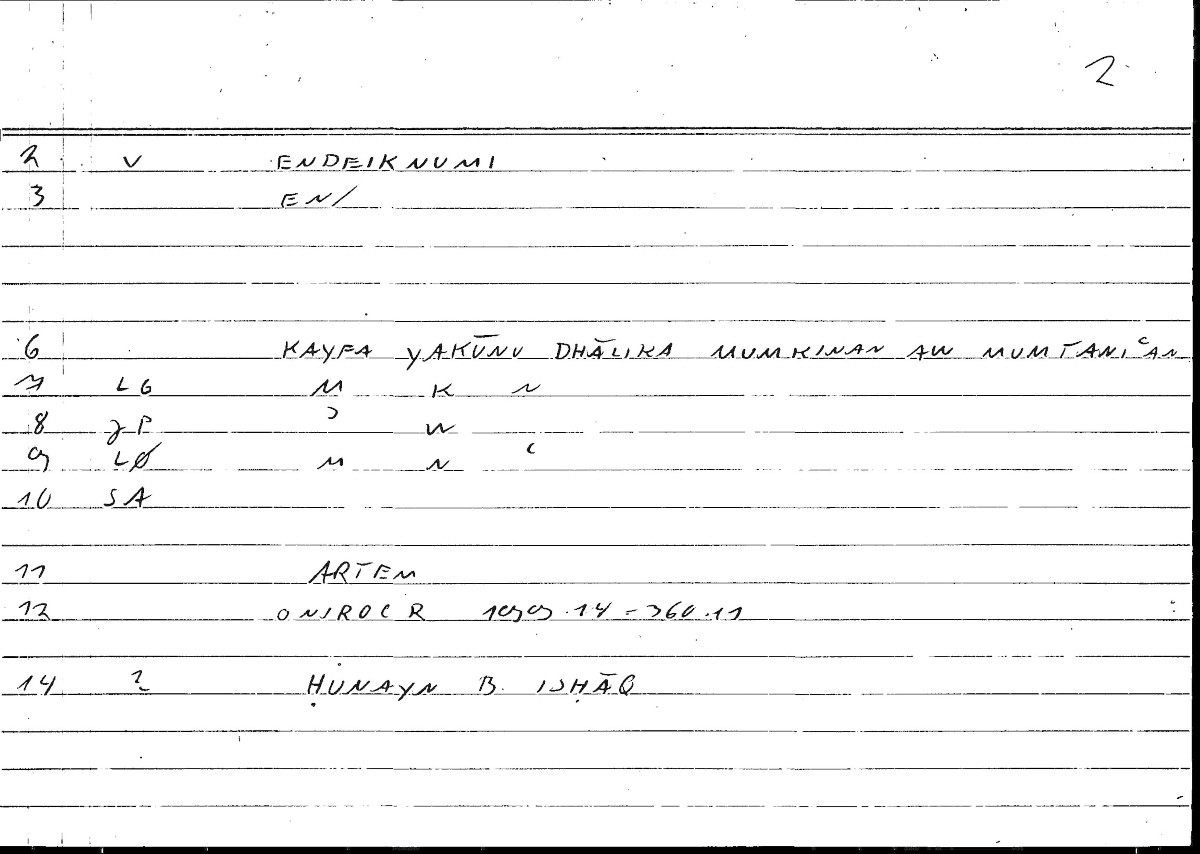 2
2 V ENDEIKNUMI
3 EN/
6 KAYFA YAKŪNU DHĀLIKA MUMKINAN AW MUMTANIʿAN
7 LG M K N
8 ʾ W
9 LØ M N ʿ
10 SA
11 ARTEM
12 ONIROCR 199.14 = 360.11
14 2 ḤUNAYN B. ISḤĀQ